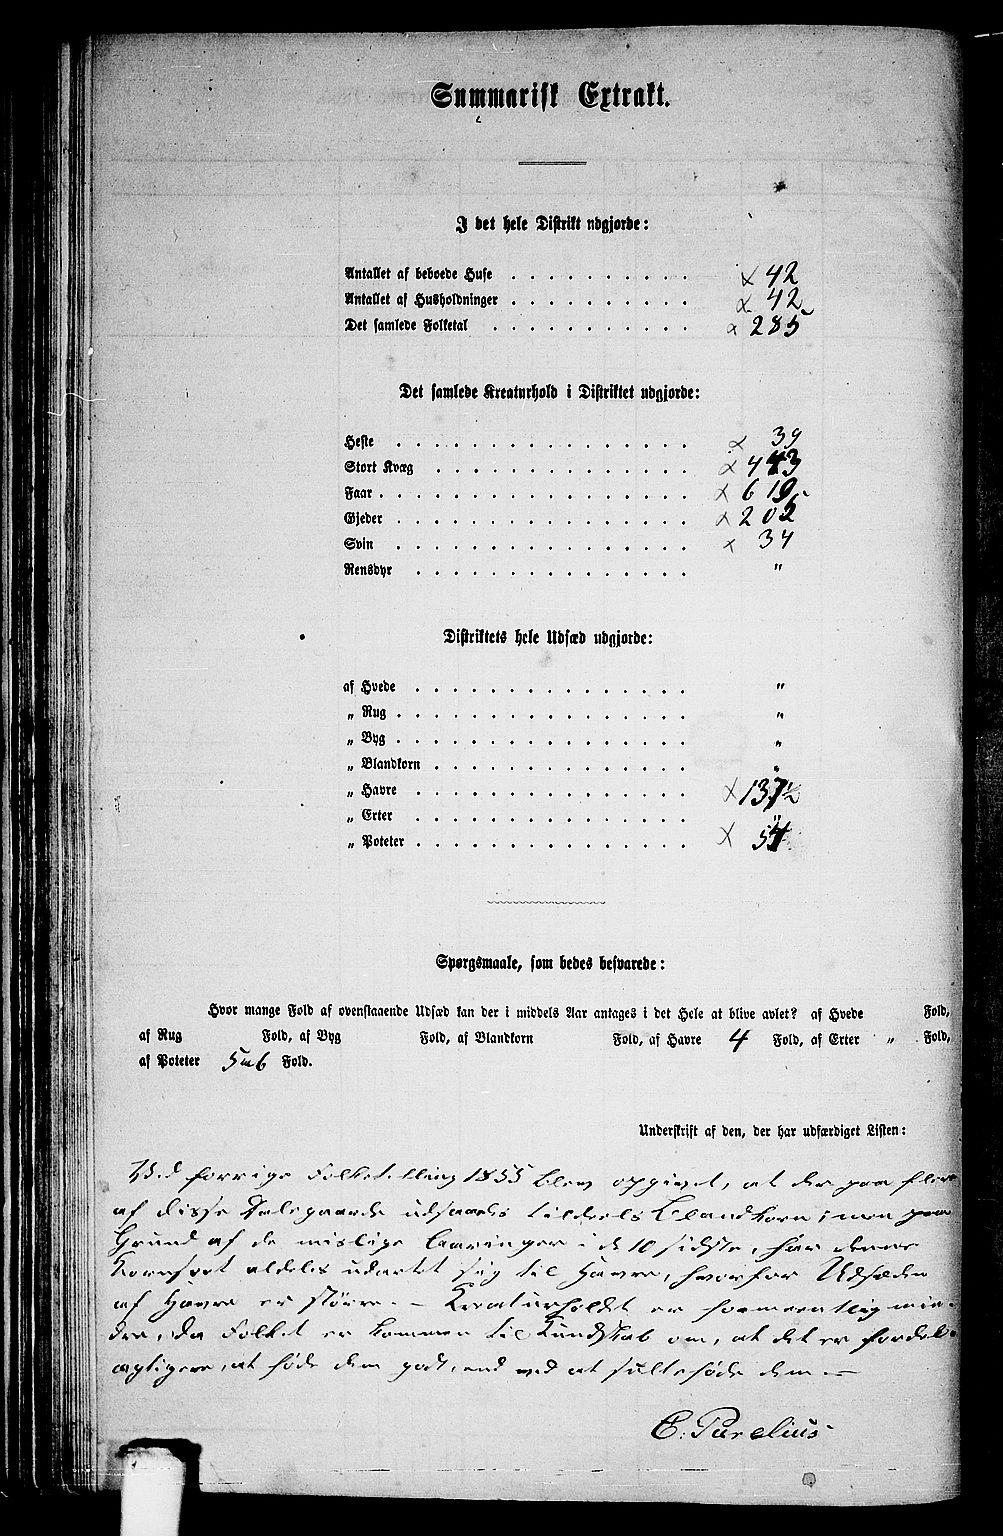 Summarisk Extrakt.
I det hele Distrikt udgjorde:
Antallet af beboede Huse . . . . . . . . . . × 42
Antallet af Husholdninger . . . . . . . . . . × 42
Det samlede Folketal . . . . . . . . . . . × 285
Det samlede Kreaturhold i Distriktet udgjorde:
Heste . . . . . . . . . . . . . . . . × 39
Stort Kvæg . . . . . . . . . . . . . . × 443
Faar . . . . . . . . . . . . . . . . . × 619
Gjeder . . . . . . . . . . . . . . . . × 205
Svin . . . . . . . . . . . . . . . . × 34
Rensdyr . . . . . . . . . . . . . . . "
Distriktets hele Udsæd udgjorde:
af Hvede . . . . . . . . . . . . . . . "
„ Rug . . . . . . . . . . . . . . . . "
„ Byg . . . . . . . . . . . . . . . . "
„ Blandkorn . . . . . . . . . . . . . . "
„ Havre . . . . . . . . . . . . . . . × 137½
„ Erter . . . . . . . . . . . . . . . "
„ Poteter . . . . . . . . . . . . . . . × 54
Spørgsmaale, som bedes besvarede:
Hvor mange Fold af ovenstaaende Udsæd kan der i middels Aar antages i det Hele at blive avlet? af Hvede Fold,
af Rug Fold, af Byg Fold, af Blandkorn Fold, af Havre 4 Fold, af Erter " Fold,
af Poteter 5 a 6 Fold.
Underskrift af den, der har udfærdiget Listen:
Ved forrige Folketelling 1855 blev opgivet, at der paa flere
af disse Dalegaarde udsaaes tildeels Blandkorn; men paa
Grund af de mislige Aaringer i de 10 sidste, har denne
Kornsort aldeles udartet sig til Havre, hvorfor Udsæden
af Havre er større. – Kreaturholdet er formeentlig min-
dre, da Folket er kommen til Kundskab om, at det er fordel-
agtigere, at føde dem godt, end ved at sulteføde dem –
C. Parelius